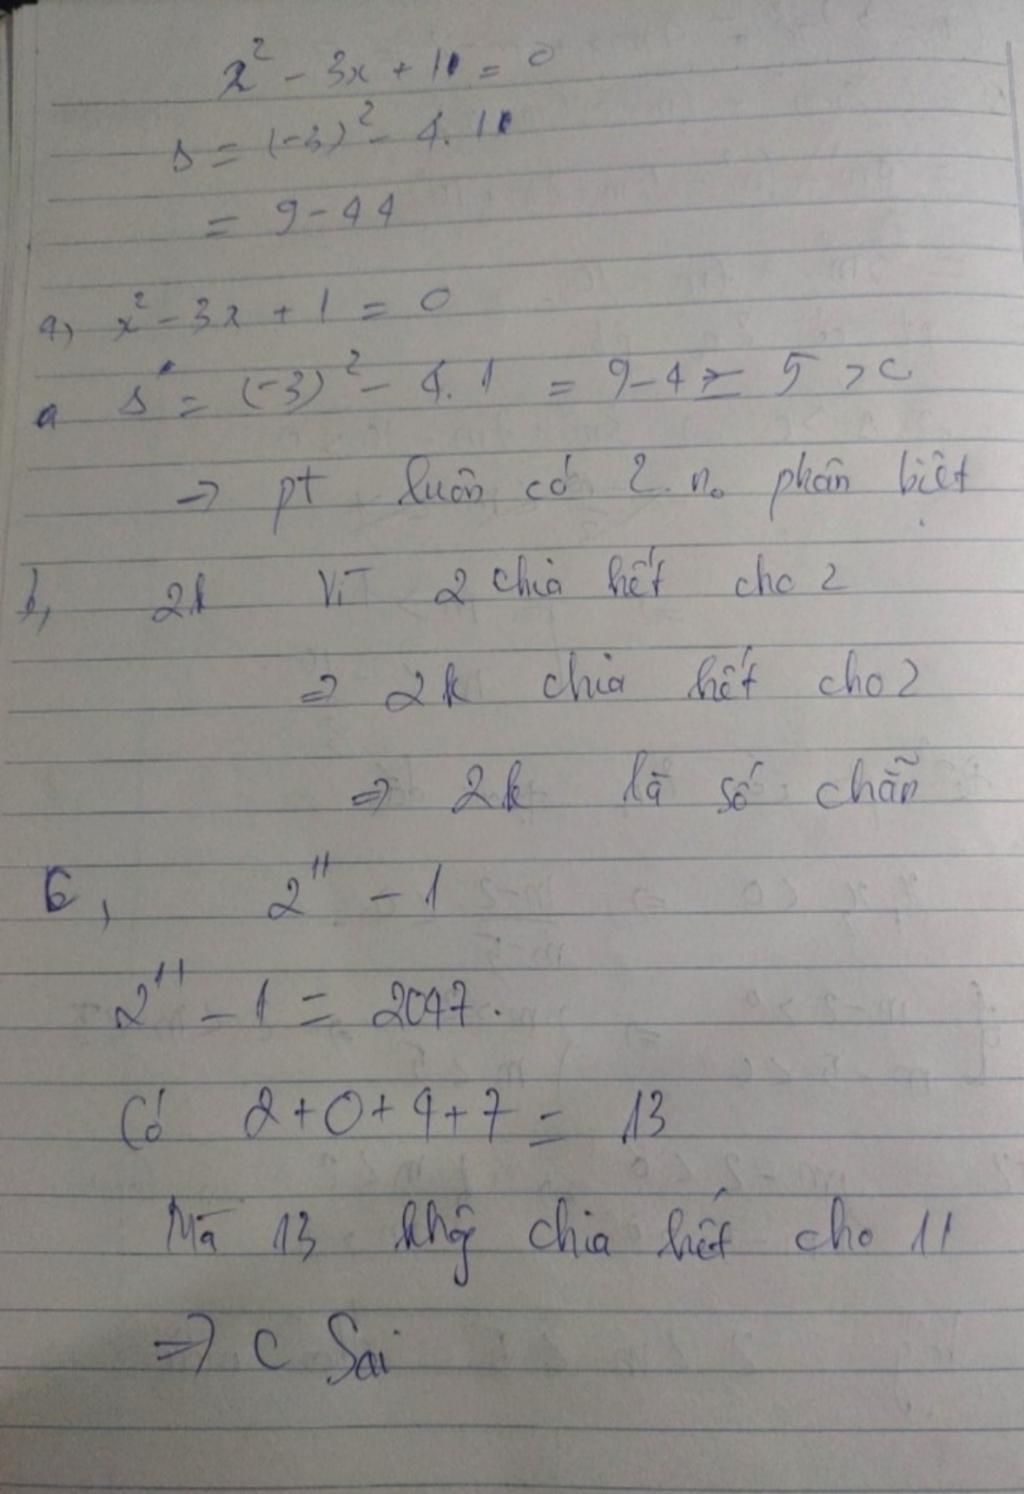 x² - 3x + 11 = 0
Δ = (-3)² - 4.11
= 9 - 44
a, x² - 3x + 1 = 0
Δ = (-3)² - 4.1 = 9-4 = 5 > 0
⇒ pt luôn có 2 n₀ phân biệt
b, 2k Vì 2 chia hết cho 2
⇒ 2k chia hết cho 2
⇒ 2k là số chẵn
C, 2¹¹ - 1
2¹¹ - 1 = 2047.
Có 2+0+4+7 = 13
Mà 13 khg chia hết cho 11
⇒ C Sai